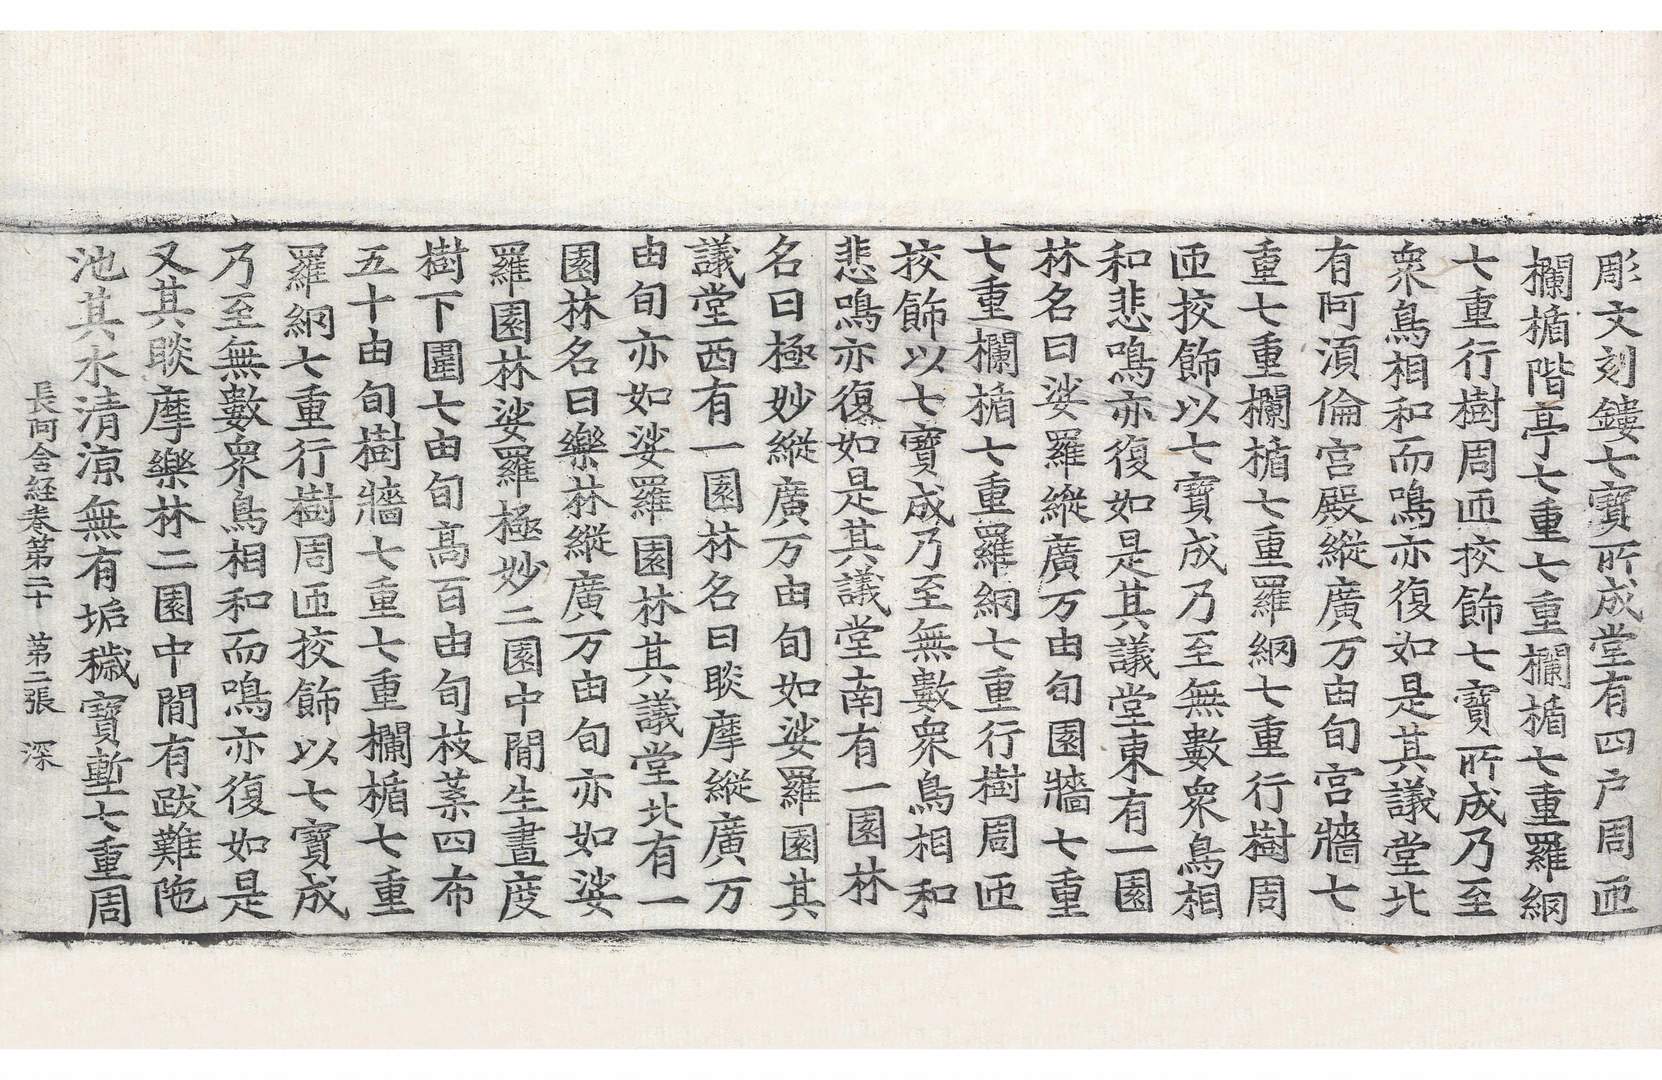 彫文刻鏤七寶所成堂有四户周匝
欄楯階亭七重七重欄楯七重羅網
七重行樹周匝挍飾七寶所成乃至
衆鳥相和而鳴亦復如是其議堂北
有阿湏倫宮殿縱廣万由旬宮牆七
重七重欄楯七重羅網七重行樹周
匝挍飾以七寶成乃至無數衆鳥相
和悲鳴亦復如是其議堂東有一園
林名曰娑羅縱廣万由旬園牆七重
七重欄楯七重羅網七重行樹周匝
挍飾以七寶成乃至無數衆鳥相和
悲鳴亦復如是其議堂南有一園林
名曰極妙縱廣万由旬如娑羅園其
議堂西有一園林名曰睒摩縱廣万
由旬亦如娑羅園林其議堂北有一
園林名曰樂林縱廣万由旬亦如娑
羅園林娑羅極妙二園中間生晝度
樹下圍七由旬高百由旬枝葉四布
五十由旬樹牆七重七重欄楯七重
羅網七重行樹周匝挍飾以七寶成
乃至無數衆鳥相和而鳴亦復如是
又其睒摩樂林二園中間有跋難陁
池其水清涼無有垢穢寶塹七重周
長阿含経卷第二十　第二張　深